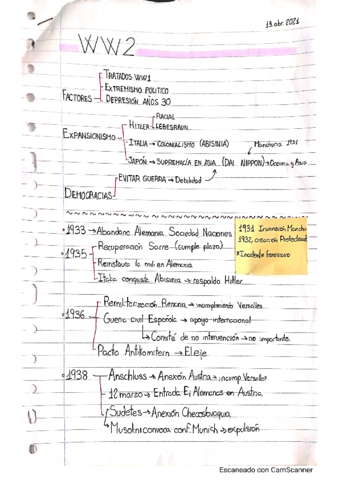 13 abr. 2021
WW2
TRATADOS WW1
EXTREMISMO POLITICO
FACTORES
DEPRESIÓN AÑOS 30
RACIAL
HITLER
LEBESRAUN
EXPANSIONISMO
ITALIA → COLONIALISMO (ABISINIA)
Manchuria 1931
JAPÓN → SUPREMACÍA EN ASIA (DAI NIPPON) → Oceania y Asia
EVITAR GUERRA → Debilidad
DEMOCRACIAS
1933 → Abandona Alemania Sociedad Naciones
1931 Invansión Manchu
1932 creación Protectorad
*Incidente ferroviario
Recuperación Sarre - (cumple plazo)
1935
Reinstaura la mili en Alemania
Italia conquista Abisinia → respaldo Hitler
Remilitarización Renania → incumplimiento Versalles
1936
Guerra civil Española → apoyo internacional
↳ Comité de no intervención → no importante
Pacto Antikomitern → Eleje
1938
Anschluss → Anexión Austria → incump. Versalles
12 marzo → Entrada Ej Alemanes en Austria
Sudetes → Anexión Checoslovaquia
Musolni convoca conf. Munish → expulsión
Escaneado con CamScanner